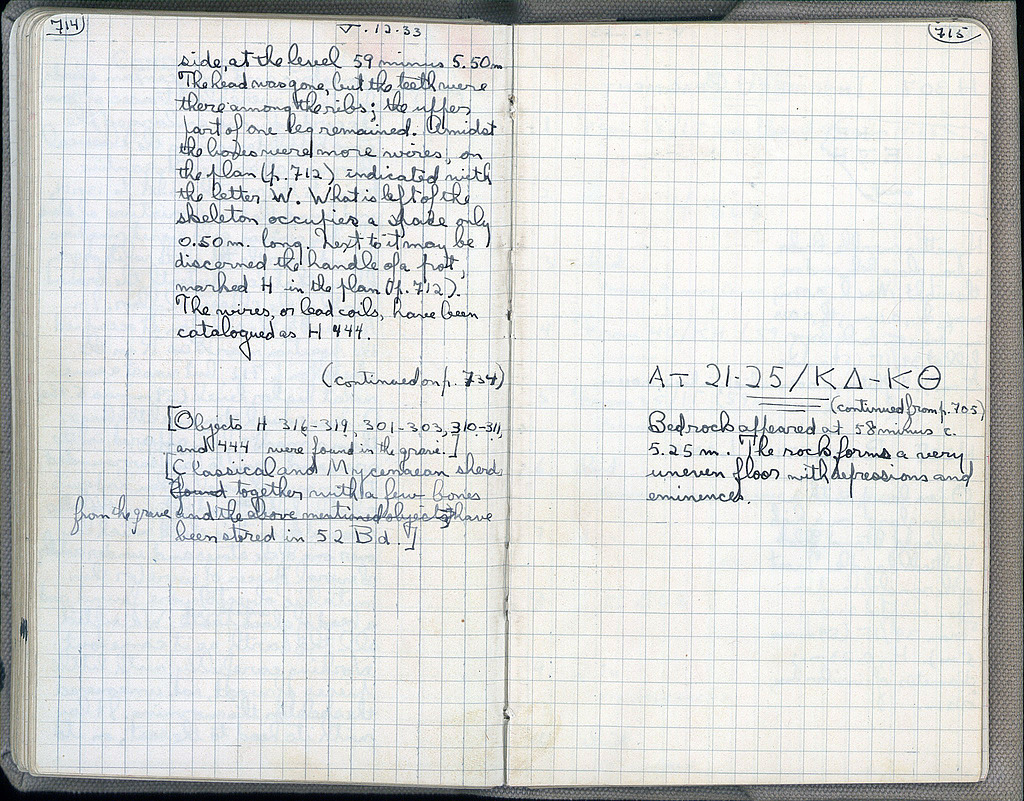 714
V. 12.33
side, at the level 59 minus 5.50m
The head was gone, but the teeth were
there among the ribs; the upper
part of one leg remained. Amidst
the bones were more wires, on
the plan (p. 712) indicated with
the letter W. What is left of the
skeleton occupies a space only
0.50 m. long. Next to it may be
discerned the handle of a pot,
marked H in the plan (p. 712).
The wires, or lead coils, have been
catalogued as H 444.
(continued on p. 734)
[Objects H 316-319, 301-303, 310-311,
and 444 were found in the grave.]
[Classical and Mycenaean sherd
found together with a few bones
from the grave and the above mentioned objects have
been stored in 52 Bd.]
715
AT 21-25/ΚΔ-ΚΘ
(continued from p. 705)
Bedrock appeared at 58 minus c.
5.25 m. The rock forms a very
uneven floor with depressions and
eminences.